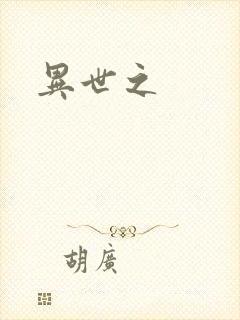 異世之
胡廣